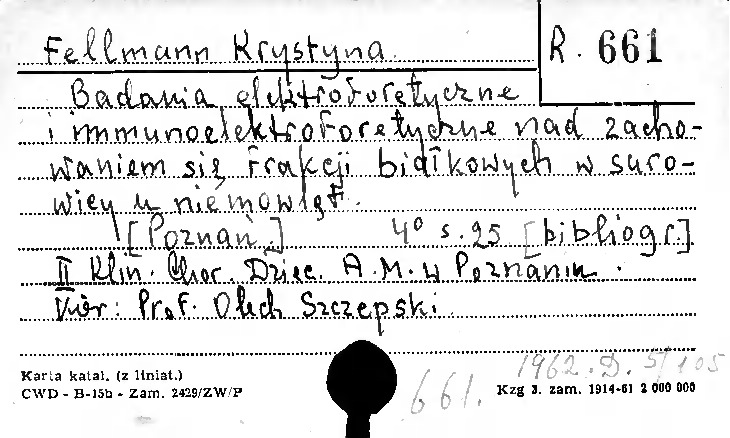 Fellmann Krystyna.
R. 661
Badania elektroforetyczne
i immunoelektroforetyczne nad zacho-
waniem się frakcji białkowych w suro-
wicy u niemowląt.
[Poznań.] 4° s. 25 [bibliogr.]
II Klin. Chor. Dziec. A.M. w Poznaniu.
Kier: Prof. Olech Szczepski.
1962. D. 5/105
661.
Karta katal. (z liniat.)
CWD - B-15b - Zam. 2429/ZW/P
Kzg 3. zam. 1914-61 2 000 000